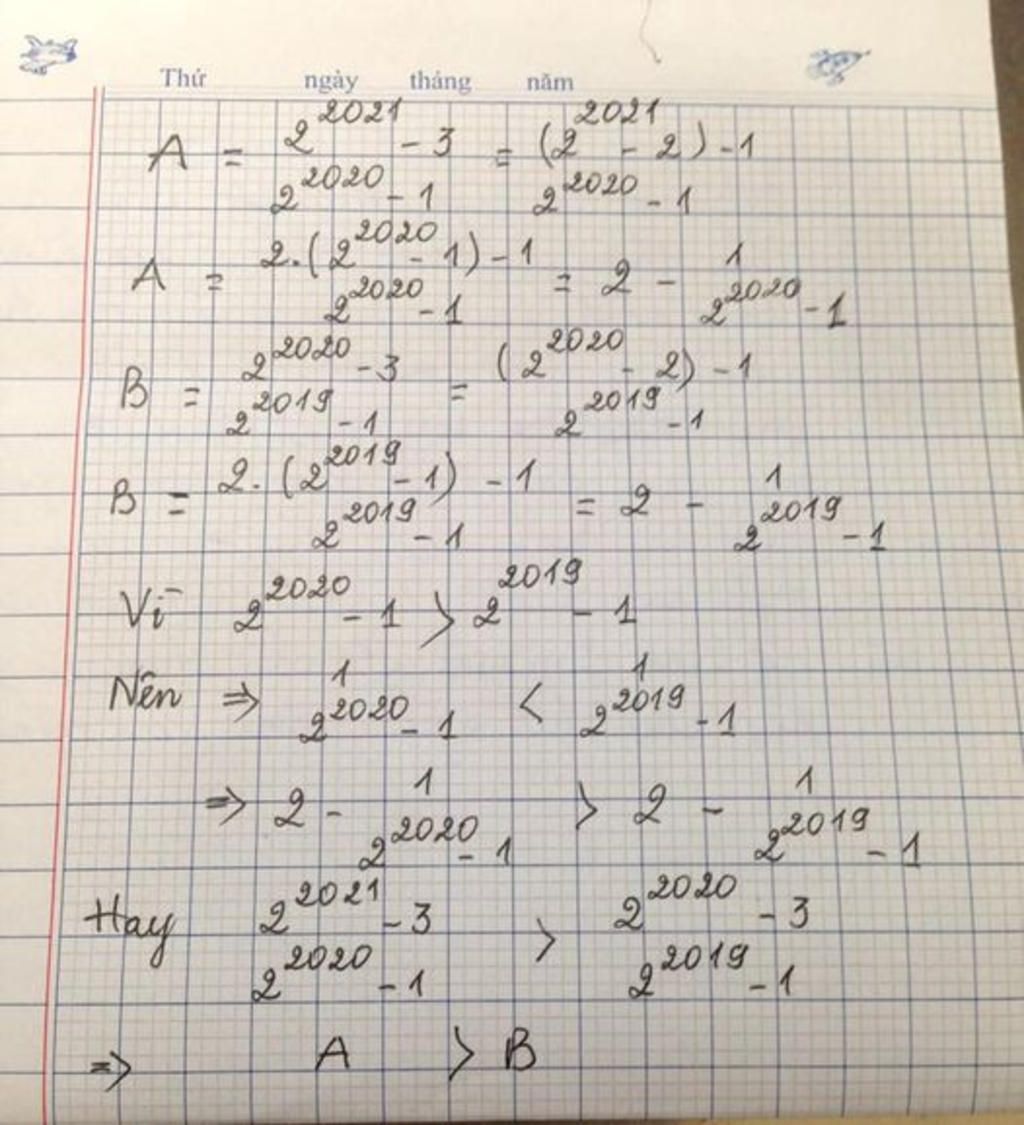 Thứ ngày tháng năm
A = 2^2021 - 3 / 2^2020 - 1 = (2^2021 - 2) - 1 / 2^2020 - 1
A = 2.(2^2020 - 1) - 1 / 2^2020 - 1 = 2 - 1 / 2^2020 - 1
B = 2^2020 - 3 / 2^2019 - 1 = (2^2020 - 2) - 1 / 2^2019 - 1
B = 2.(2^2019 - 1) - 1 / 2^2019 - 1 = 2 - 1 / 2^2019 - 1
Vì 2^2020 - 1 > 2^2019 - 1
Nên => 1 / 2^2020 - 1 < 1 / 2^2019 - 1
=> 2 - 1 / 2^2020 - 1 > 2 - 1 / 2^2019 - 1
Hay 2^2021 - 3 / 2^2020 - 1 > 2^2020 - 3 / 2^2019 - 1
=> A > B